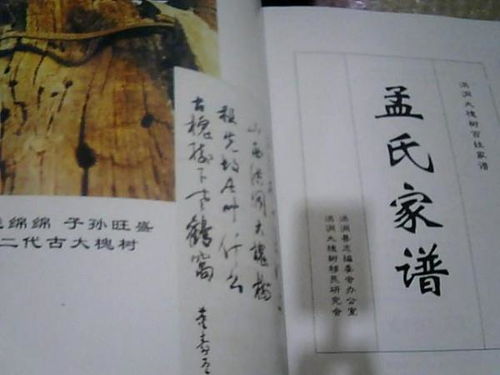 洪洞大槐树百姓家谱
孟氏家谱
洪洞县志编委会办公室
洪洞大槐树移民研究会
山西洪洞大槐树
祖先故居叫什么
古槐树下老鹳窝
绵绵 子孙旺盛
二代古大槐树